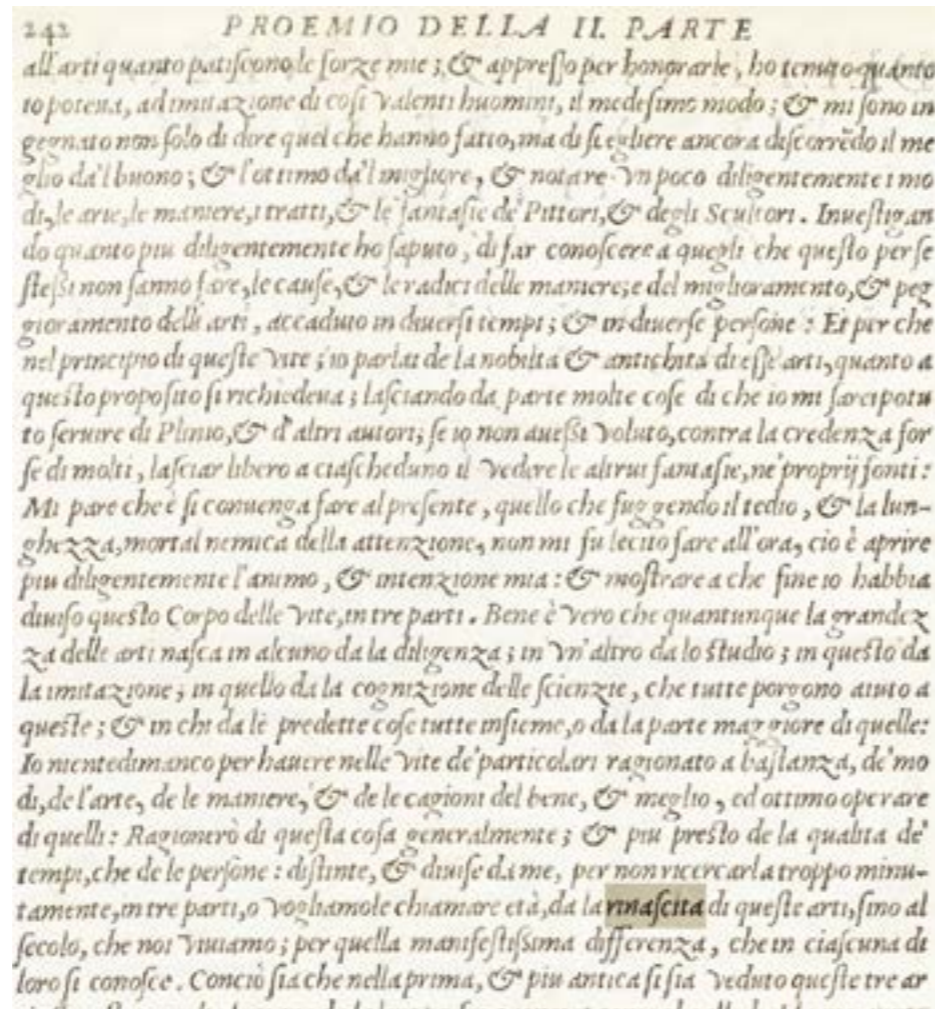 242 PROEMIO DELLA II. PARTE
all'arti quanto patiscono le forze mie; & appresso per honorarle, ho tenuto quanto
io poteua, ad imitazione di cosi valenti huomini, il medesimo modo; & mi sono in
gegnato non solo di dire quel che hanno fatto, ma di scegliere ancora discorrēdo il me
glio da'l buono; & l'ottimo da'l migliore, & notare vn poco diligentemente i mo
di, le arie, le maniere, i tratti, & le fantasie de' Pittori, & degli Scultori. Inuestigan
do quanto piu diligentemente ho saputo, di far conoscere a quegli che questo per se
stessi non sanno fare, le cause, & le radici delle maniere; e del miglioramento, & peg
gioramento delli arti, accaduto in diuersi tempi; & in diuerse persone: Et per che
nel principio di queste vite; io parlai de la nobilta & antichita di esse arti, quanto a
questo proposito si richiedeua; lasciando da parte molte cose di che io mi sarei potu
to seruire di Plinio, & d'altri autori; se io non auessi voluto, contra la credenza for
se di molti, lasciar libero a ciascheduno il vedere le altrui fantasie, ne' proprij fonti:
Mi pare che e' si conuenga fare al presente, quello che fuggendo il tedio, & la lun-
ghezza, mortal nemica della attenzione, non mi fu lecito fare all'ora, cio è aprire
piu diligentemente l'animo, & intenzione mia: & mostrare a che fine io habbia
diuiso questo Corpo delle vite, in tre parti. Bene è vero che quantunque la grandez
za delle arti nasca in alcuno da la diligenza; in vn'altro da lo studio; in questo da
la imitazione; in quello da la cognizione delle scienzie, che tutte porgono aiuto a
queste; & in chi da le predette cose tutte insieme, o da la parte maggiore di quelle:
Io nientedimanco per hauere nelle vite de' particolari ragionato a bastanza, de' mo
di, de l'arte, de le maniere, & de le cagioni del bene, & meglio, ed ottimo operare
di quelli: Ragionerò di questa cosa generalmente; & piu presto de la qualita de'
tempi, che de le persone: distinte, & diuise da me, per non ricercarla troppo minu-
tamente, in tre parti, o vogliamole chiamare età, da la rinascita di queste arti, sino al
secolo, che noi viuiamo; per quella manifestissima differenza, che in ciascuna di
loro si conosce. Conciò sia che nella prima, & piu antica si sia veduto queste tre ar